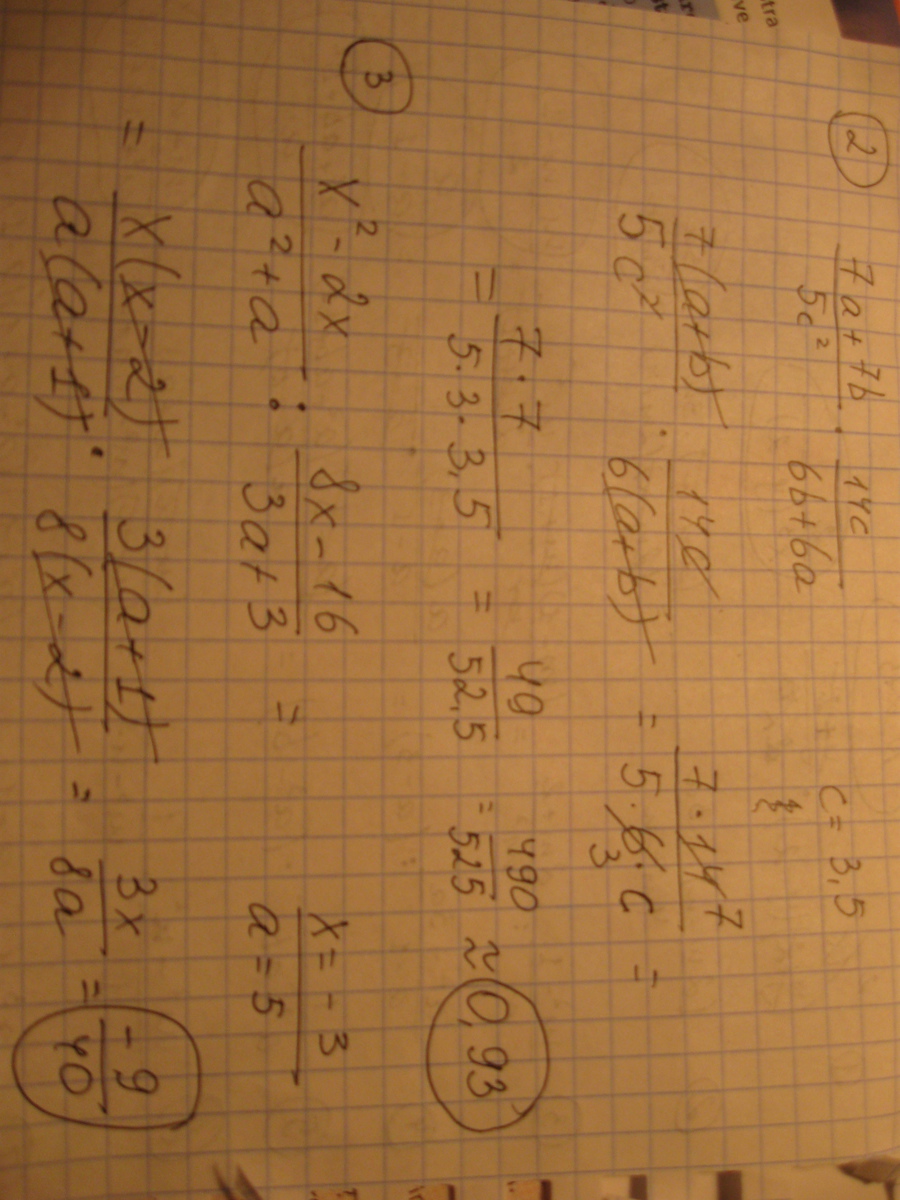 2
(7a+7b)/(5c²) · 14c/(6b+6a) c = 3,5
7(a+b)/(5c²) · 14c/(6(a+b)) = (7·14 7)/(5·6 3·c) =
= (7·7)/(5·3·3,5) = 49/52,5 = 490/525 ≈ 0,93
3
(x²-2x)/(a²+a) : (8x-16)/(3a+3) = x = -3
a = 5
= x(x-2)/(a(a+1)) · 3(a+1)/(8(x-2)) = 3x/8a = -9/40
tra
ve